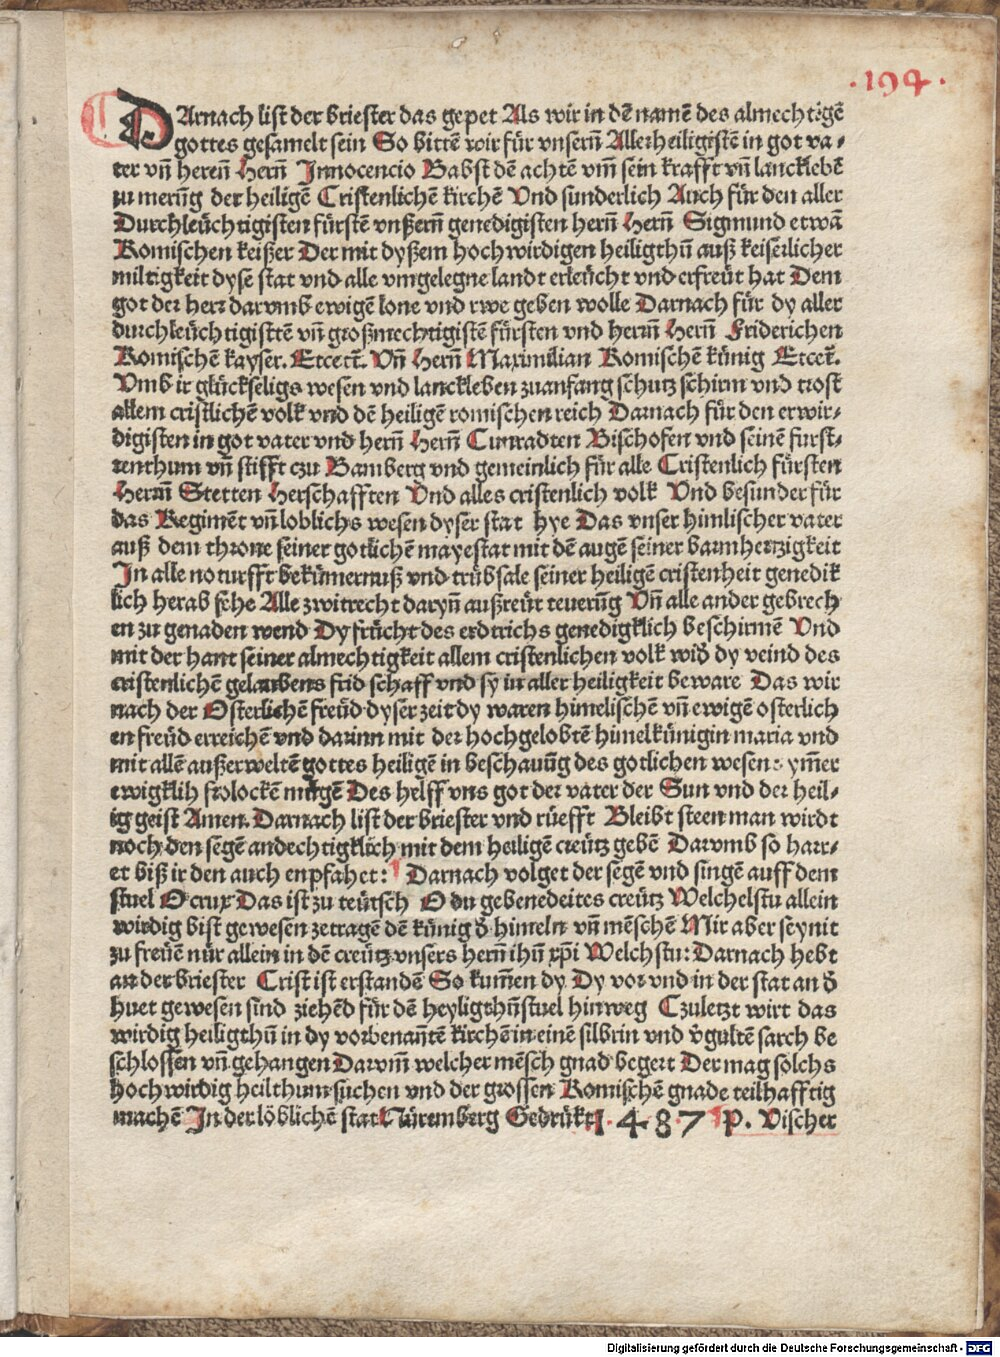 .194.
DArnach list der briester das gepet Als wir in dē namē des almechtigē
gottes gesamelt sein So bittē wir für vnsern̄ Allerheiligistē in got va-
ter vn̄ heren̄ Hern̄ Innocencio Babst dē achtē vm̄ sein krafft vn̄ lancklebē
zu merūg der heiligē Cristenlichē kirchē Vnd sunderlich Auch für den aller
Durchleüchtigisten fürstē vnßern̄ genedigisten hern̄ Hern̄ Sigmund etwā
Romischen keißer Der mit dyßem hochwirdigen heiligthū auß keiserlicher
miltigkeit dyse stat vnd alle vmgelegne landt erleücht vnd erfreüt hat Dem
got der herr darvmb ewigē lone vnd rwe geben wolle Darnach für dy aller
durchleüchtigisttē vn̄ großmechtigistē fürsten vnd herrn̄ Hern̄ Friderichen
Romischē kayser. Etcect̄. Vn̄ Hern̄ Maximilian Romischē künig Etcet̄.
Vmb ir glückseligs wesen vnd lanckleben zuanfang schutz schirm vnd trost
allem cristlichē volk vnd dē heiligē romischen reich Darnach für den erwir-
digisten in got vater vnd hern̄ Hern̄ Cunradten Bischofen vnd seinē furst-
tenthum vn̄ stifft czu Bamberg vnd gemeinlich für alle Cristenlich fürsten
Herrn̄ Stetten Herschafften Vnd alles cristenlich volk Vnd besunder für
das Regimēt vn̄ loblichs wesen dyser stat hye Das vnser himlischer vater
auß dem throne seiner gotlichē mayestat mit dē augē seiner barmhertzigkeit
In alle noturfft bekümernuß vnd trübsale seiner heiligē cristenheit genedik
lich herab sehe Alle zwitrecht daryn̄ außreüt teverūg Vn̄ alle ander gebrech
en zu genaden wend Dy frücht des erdtrichs genedigklich beschirmē Vnd
mit der hant seiner almechtigkeit allem cristenlichen volk wid̄ dy veind des
cristenlichē gelaubens frid schaff vnd sy in aller heiligkeit beware Das wir
nach der Osterlichē freüd dyser zeit dy waren himelischē vn̄ ewigē osterlich
en freüd erreichē vnd darinn mit der hochgelobtē himelkünigin maria vnd
mit allē außerweltē gottes heiligē in beschauūg des gotlichen wesens ym̄er
ewigklih frolockē mügē Des helff vns got der vater der Sun vnd der heil-
ig geist Amen. Darnach list der briester vnd rüefft Bleibt steen man wirdt
noch den segē andechtigklich mit dem heiligē creütz gebē Darvmb so harr-
et biß ir den auch enpfahet: Darnach volget der segē vnd singē auff dem
stuel O crux Das ist zu teütsch O du gebenedeites creütz Welchelstu allein
wirdig bist gewesen zetragē dē künig d̄ himeln vn̄ mēschē Mir aber seynit
zu freüē nür allein in dē creütz vnsers hern̄ ihū xp̄i Welchstu: Darnach hebt
an der briester Crist ist erstandē So kum̄en dy Dy vor vnd in der stat an d̄
huet gewesen sind ziehēd für dē heyligthūstuel hinweg Czuletzt wirt das
wirdig heiligthū in dy vorbenan̄tē kirchē in einē silbrin vnd v̄gultē sarch be
schlossen vn̄ gehangen Darvm̄ welcher mēsch gnad begert Der mag solchs
hochwirdig heilthum suchen vnd der grossen Romischē gnade teilhafftig
machē In der löblichē stat Nüremberg Gedrükt 1.4.8.7 P. Vischer
Digitalisierung gefördert durch die Deutsche Forschungsgemeinschaft - DFG